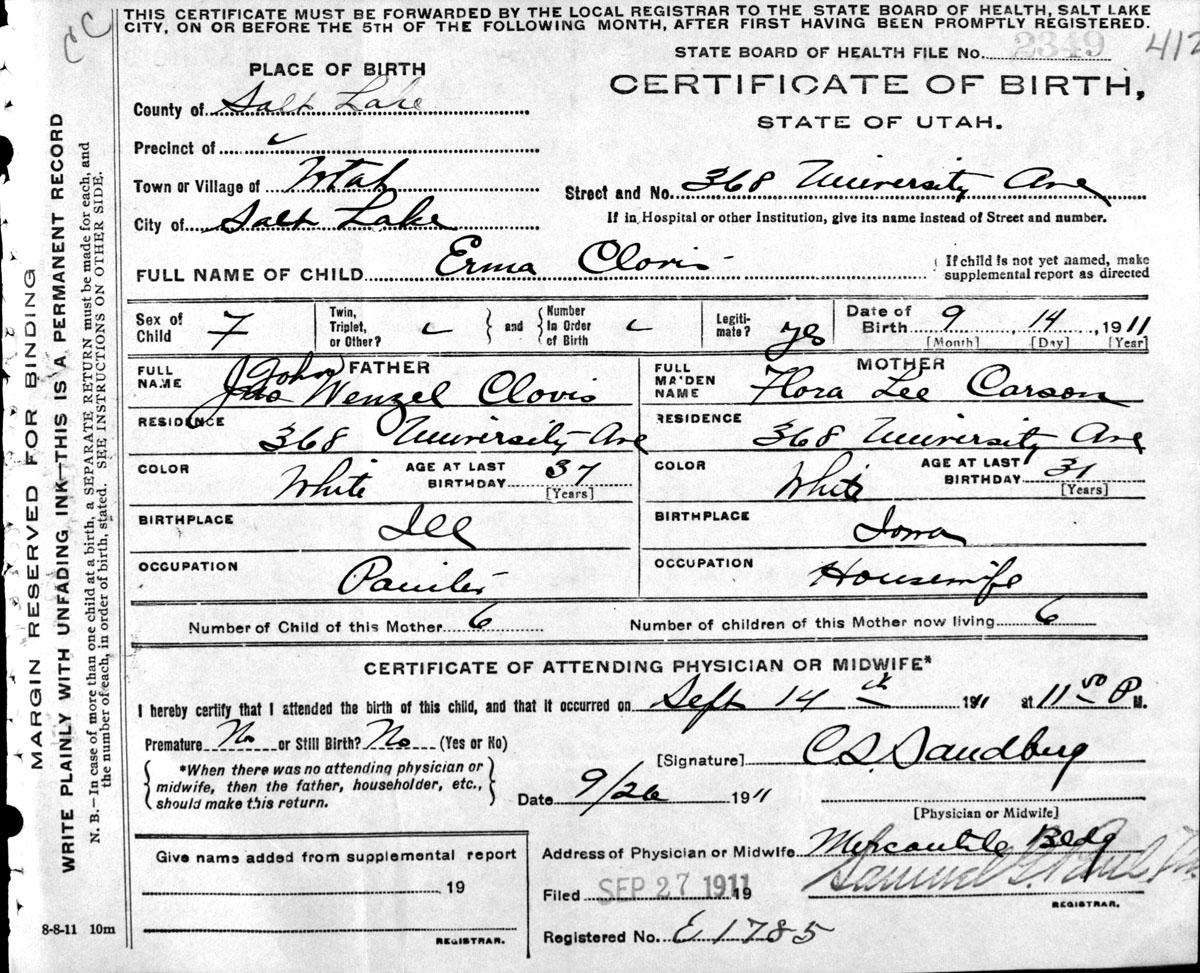 THIS CERTIFICATE MUST BE FORWARDED BY THE LOCAL REGISTRAR TO THE STATE BOARD OF HEALTH, SALT LAKE
CITY, ON OR BEFORE THE 5TH OF THE FOLLOWING MONTH, AFTER FIRST HAVING BEEN PROMPTLY REGISTERED.
STATE BOARD OF HEALTH FILE No. 2349 412
PLACE OF BIRTH
CERTIFICATE OF BIRTH,
STATE OF UTAH.
County of Salt Lake
Precinct of
Town or Village of Utah
Street and No. 368 University Ave
City of Salt Lake
If in Hospital or other Institution, give its name instead of Street and number.
FULL NAME OF CHILD Erma Clovis
If child is not yet named, make
supplemental report as directed
Sex of Child F
Twin, Triplet, or Other?
and
Number In Order of Birth
Legiti-mate? yes
Date of Birth 9 14 1911
[Month] [Day] [Year]
FATHER
FULL NAME Jno John Wenzel Clovis
MOTHER
FULL MAIDEN NAME Flora Lee Carson
RESIDENCE 368 University Ave
RESIDENCE 368 University Ave
COLOR White
AGE AT LAST BIRTHDAY 37
[Years]
COLOR White
AGE AT LAST BIRTHDAY 31
[Years]
BIRTHPLACE Ill
BIRTHPLACE Iowa
OCCUPATION Painter
OCCUPATION Housewife
Number of Child of this Mother 6
Number of children of this Mother now living 6
CERTIFICATE OF ATTENDING PHYSICIAN OR MIDWIFE*
I hereby certify that I attended the birth of this child, and that it occurred on Sept 14th 1911 at 11 50 P M.
Premature No or Still Birth? No (Yes or No)
*When there was no attending physician or
midwife, then the father, householder, etc.,
should make this return.
[Signature] C. S. Sandberg
Date 9/26 1911
[Physician or Midwife]
Give name added from supplemental report
19
REGISTRAR.
Address of Physician or Midwife Mercantile Bldg
Filed SEP 27 1911 19
REGISTRAR.
Registered No. E 1785
8-8-11 10m
MARGIN RESERVED FOR BINDING
WRITE PLAINLY WITH UNFADING INK—THIS IS A PERMANENT RECORD
N. B.—In case of more than one child at a birth, a SEPARATE RETURN must be made for each, and
the number of each, in order of birth, stated. SEE INSTRUCTIONS ON OTHER SIDE.